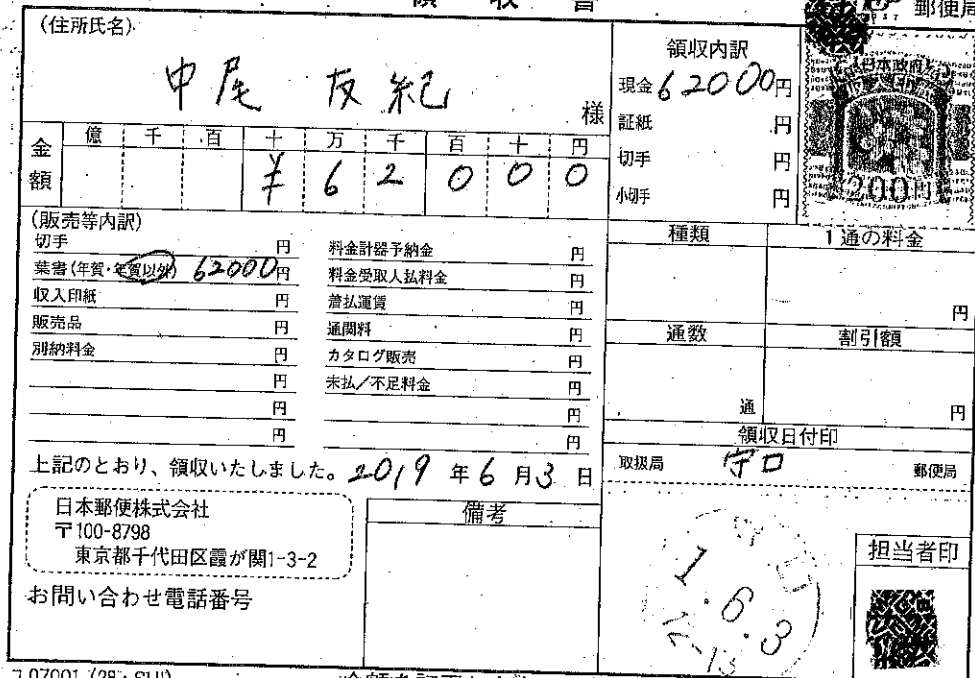 領収書
郵便局
(住所氏名)
中尾 友紀 様
金額
億 千 百 十 万 千 百 十 円
¥ 6 2 0 0 0
領収内訳
現金 62000円
証紙 円
切手 円
小切手 円
日本政府
200円
(販売等内訳)
切手 円
葉書(年賀・年賀以外) 62000円
収入印紙 円
販売品 円
別納料金 円
円
円
円
料金計器予納金 円
料金受取人払料金 円
着払運賃 円
通関料 円
カタログ販売 円
未払/不足料金 円
円
円
種類 1通の料金
円
通数 割引額
通 円
領収日付印
取扱局 守口 郵便局
上記のとおり、領収いたしました。2019年6月3日
日本郵便株式会社
〒100-8798
東京都千代田区霞が関1-3-2
お問い合わせ電話番号
備考
守口
1.6.3
12-13
担当者印